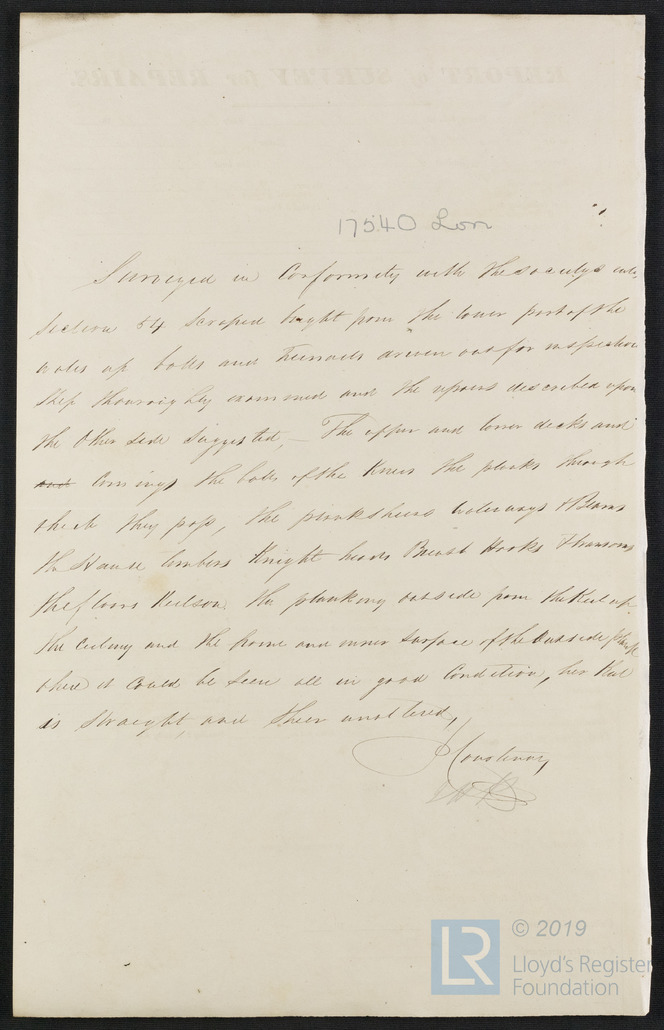 17540 Lon
Surveyed in Conformity with the society's rules
Section 54 scraped bright from the lower part of the
wales up bolts and Treenails driven out for inspection
Ship thouroughly examined and the repairs described upon
the Other side Suggested, The upper and lower decks and
and Comings the bolts of the Knees the planks through
which they pass, the planksheers waterways & Beams
the Hawse timbers Knight heads Breast Hooks Transoms
the floors Keelson the planking outside from the Keel up
the Ceiling and the frame and inner surface of the outside plank
where it could be seen all in good Condition, her Keel
is straight, and Sheer unaltered,
J Courtenay
© 2019
LR
Lloyd's Register
Foundation